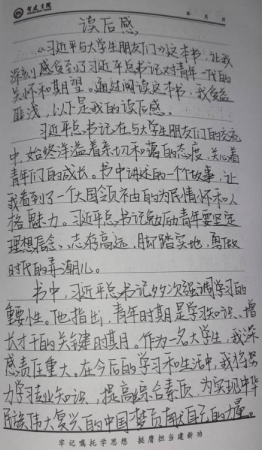 年 月 日
读后感
《习近平与大学生朋友们》这本书，让我
深刻感受到了习近平总书记对青年一代的
关怀和期望。通过阅读这本书，我受益
匪浅，以下是我的读后感。
习近平总书记在与大学生朋友们的交流
中，始终洋溢着亲切和蔼的态度，关心着
青年们的成长。书中讲述的一个个故事，让
我看到了一个大国领袖的为民情怀和人
格魅力。习近平总书记勉励青年要坚定
理想信念、志存高远，脚踏实地，勇做
时代的弄潮儿。
书中，习近平总书记多次强调学习的
重要性。他指出，青年时期是学习知识、增
长才干的关键时期。作为一名大学生，我深
感责任重大。在今后的学习和生活中，我将努
力学习专业知识，提高综合素质，为实现中华
民族伟大复兴的中国梦贡献自己的力量。
牢记嘱托学思想 挺膺担当建新功